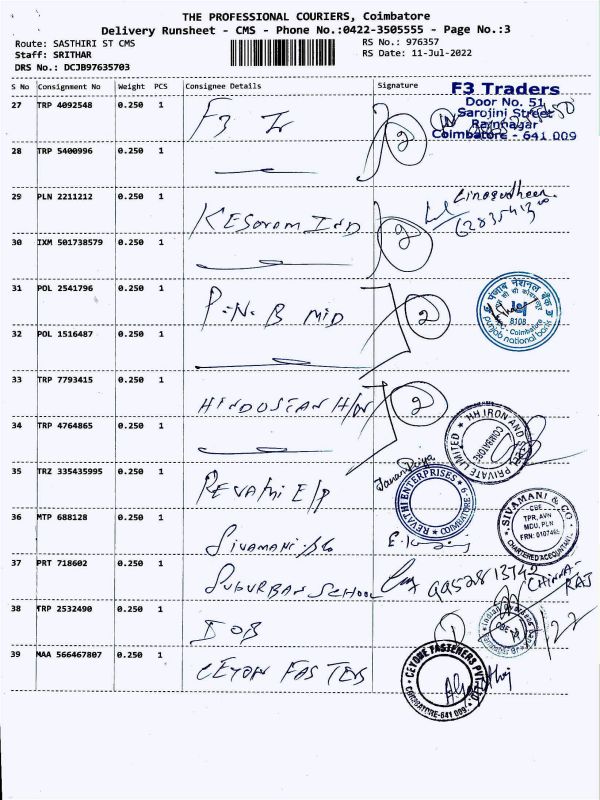 THE PROFESSIONAL COURIERS, Coimbatore
Delivery Runsheet - CMS - Phone No.:0422-3505555 - Page No.:3
Route: SASTHIRI ST CMS
RS No.: 976357
Staff: SRITHAR
RS Date: 11-Jul-2022
DRS No.: DCJB97635703
S No Consignment No Weight PCS Consignee Details Signature
F3 Traders
Door No. 51
Sarojini Street
Ramnagar
Coimbatore - 641 009
27 TRP 4092548 0.250 1 F3
2
28 TRP 5400996 0.250 1
29 PLN 2211212 0.250 1 Kesoram Ind
30 IXM 501738579 0.250 1
2
31 POL 2541796 0.250 1 P.N.B MID
2
पंजाब नैशनल बैंक
pnb
8108
Coimbatore
punjab national bank
32 POL 1516487 0.250 1
33 TRP 7793415 0.250 1
2
HH IRON AND
PRIVATE LIMITED
COIMBATORE
34 TRP 4764865 0.250 1
35 TRZ 335435995 0.250 1 Revathi E/P
REVATHI ENTERPRISES
COIMBATORE-9
36 MTP 688128 0.250 1 Sivamani
SIVAMANI & CO
CBE
TPR, AVN
MDU, PLN
CHARTERED ACCOUNTANT
37 PRT 718602 0.250 1 Suburban School
CHINNA-
RAJ
38 TRP 2532490 0.250 1 IOB
39 MAA 566467807 0.250 1
CEYONE FASTENERS PVT LTD
COIMBATORE-641 009